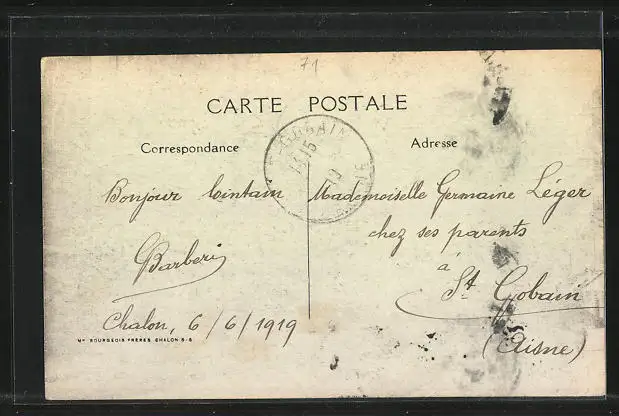 71
CARTE POSTALE
Correspondance
Adresse
Bonjour lointain
Barberi
Chalon, 6/6/1919
Mademoiselle Germaine Léger
chez ses parents
à
St Gobain
(Aisne)
GOBAIN
13 15
19
AISNE
Mon BOURGEOIS FRÈRES CHALON S-S